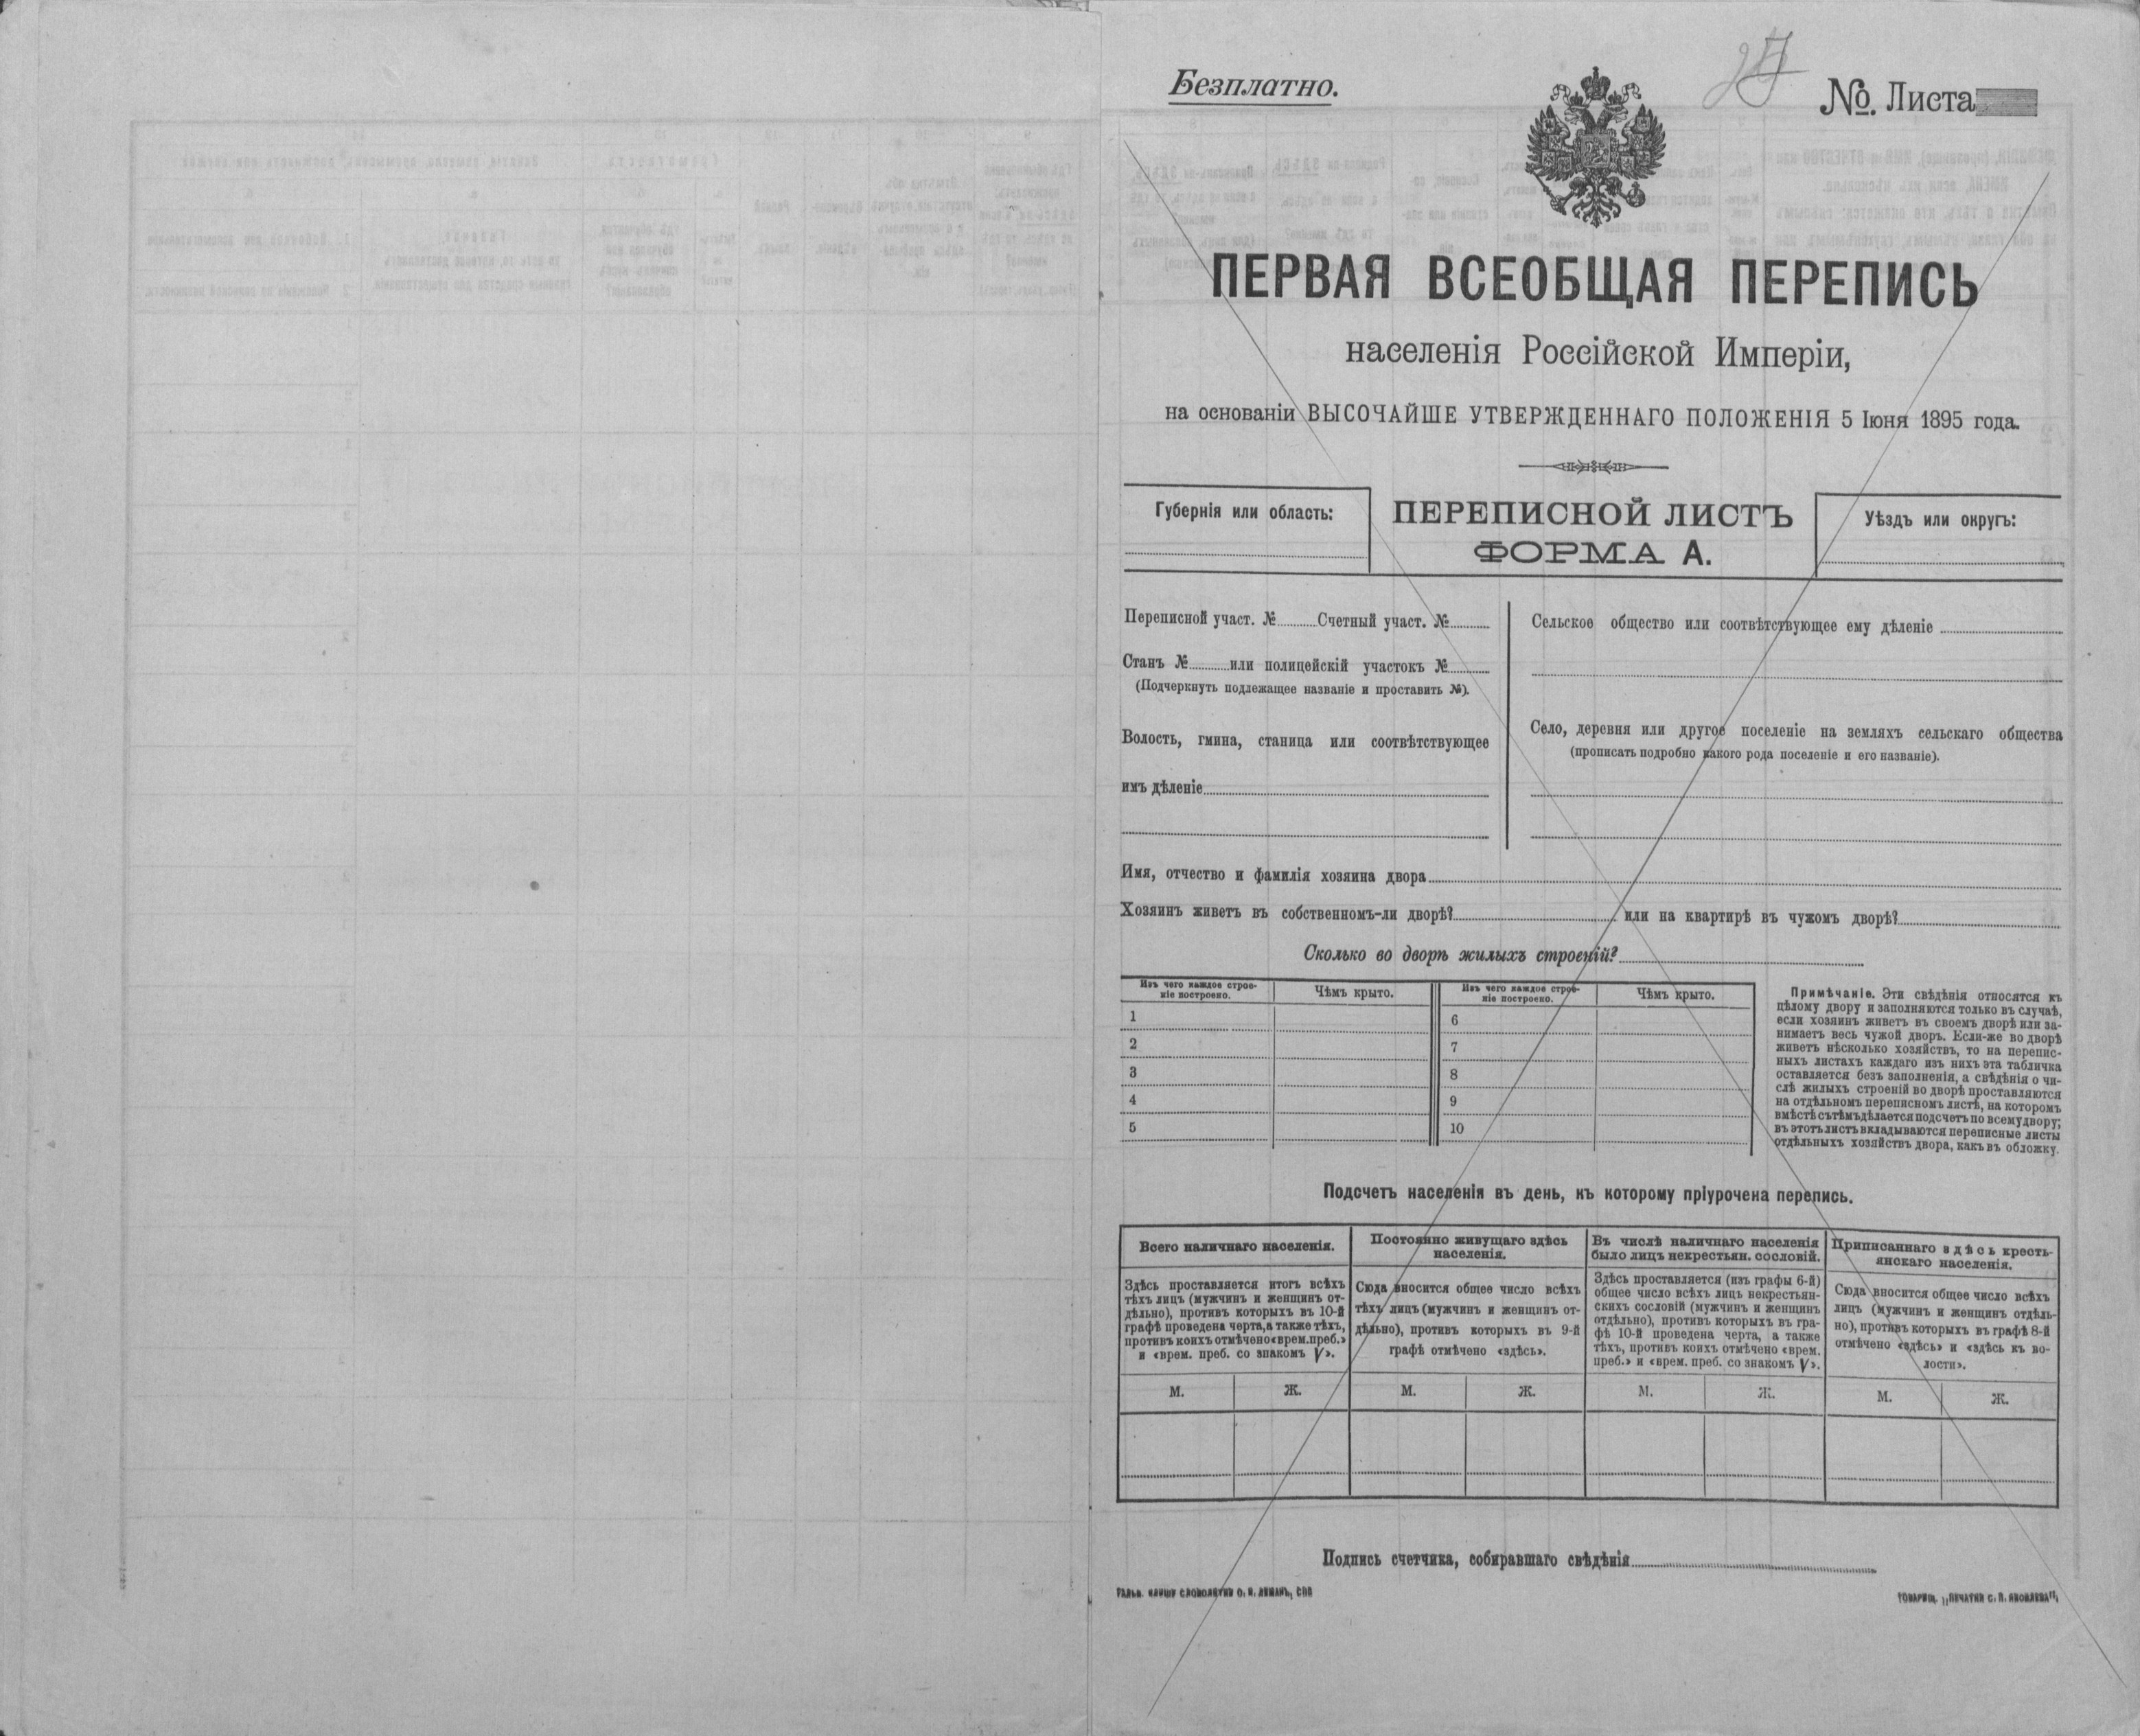 Безплатно.
№ Листа
ПЕРВАЯ ВСЕОБЩАЯ ПЕРЕПИСЬ
населенія Россійской Имперіи,
на основаніи ВЫСОЧАЙШЕ УТВЕРЖДЕННАГО ПОЛОЖЕНІЯ 5 Іюня 1895 года.
Губернія или область:
ПЕРЕПИСНОЙ ЛИСТЪ
ФОРМА А.
Уѣздъ или округъ:
Переписной участ. № Счетный участ. №
Станъ № или полицейскій участокъ №
(Подчеркнуть подлежащее названіе и проставить №).
Волость, гмина, станица или соотвѣтствующее
имъ дѣленіе
Сельское общество или соотвѣтствующее ему дѣленіе
Село, деревня или другое поселеніе на земляхъ сельскаго общества
(прописать подробно какого рода поселеніе и его названіе).
Имя, отчество и фамилія хозяина двора
Хозяинъ живетъ въ собственномъ-ли дворѣ? или на квартирѣ въ чужомъ дворѣ?
Сколько во дворѣ жилыхъ строеній?
Изъ чего каждое строе-
ніе построено.
Чѣмъ крыто.
1
2
3
4
5
Изъ чего каждое строе-
ніе построено.
Чѣмъ крыто.
6
7
8
9
10
Примѣчаніе. Эти свѣдѣнія относятся къ
цѣлому двору и заполняются только въ случаѣ,
если хозяинъ живетъ въ своемъ дворѣ или за-
нимаетъ весь чужой дворъ. Если-же во дворѣ
живетъ нѣсколько хозяйствъ, то на перепис-
ныхъ листахъ каждаго изъ нихъ эта табличка
оставляется безъ заполненія, а свѣдѣнія о чи-
слѣ жилыхъ строеній во дворѣ проставляются
на отдѣльномъ переписномъ листѣ, на которомъ
вмѣстѣ съ тѣмъ дѣлается подсчетъ по всему двору;
въ этотъ листъ вкладываются переписные листы
отдѣльныхъ хозяйствъ двора, какъ въ обложку.
Подсчетъ населенія въ день, къ которому пріурочена перепись.
Всего наличнаго населенія.
Здѣсь проставляется итогъ всѣхъ
тѣхъ лицъ (мужчинъ и женщинъ от-
дѣльно), противъ которыхъ въ 10-й
графѣ проведена черта, а также тѣхъ,
противъ коихъ отмѣчено «врем. преб.»
и «врем. преб. со знакомъ V».
М. Ж.
Постоянно живущаго здѣсь
населенія.
Сюда вносится общее число всѣхъ
тѣхъ лицъ (мужчинъ и женщинъ от-
дѣльно), противъ которыхъ въ 9-й
графѣ отмѣчено «здѣсь».
М. Ж.
Въ числѣ наличнаго населенія
было лицъ некрестьян. сословій.
Здѣсь проставляется (изъ графы 6-й)
общее число всѣхъ лицъ некрестьян-
скихъ сословій (мужчинъ и женщинъ
отдѣльно), противъ которыхъ въ гра-
фѣ 10-й проведена черта, а также
тѣхъ, противъ коихъ отмѣчено «врем.
преб.» и «врем. преб. со знакомъ V».
М. Ж.
Приписаннаго здѣсь кресть-
янскаго населенія.
Сюда вносится общее число всѣхъ
лицъ (мужчинъ и женщинъ отдѣль-
но), противъ которыхъ въ графѣ 8-й
отмѣчено «здѣсь» и «здѣсь къ во-
лости».
М. Ж.
Подпись счетчика, собиравшаго свѣдѣнія
ГАЛЬВ. КЛИШЕ СЛОВОЛИТНИ О. И. ЛЕМАНЪ, СПБ
ТОВАРИЩ. „ПЕЧАТНЯ С. П. ЯКОВЛЕВА"